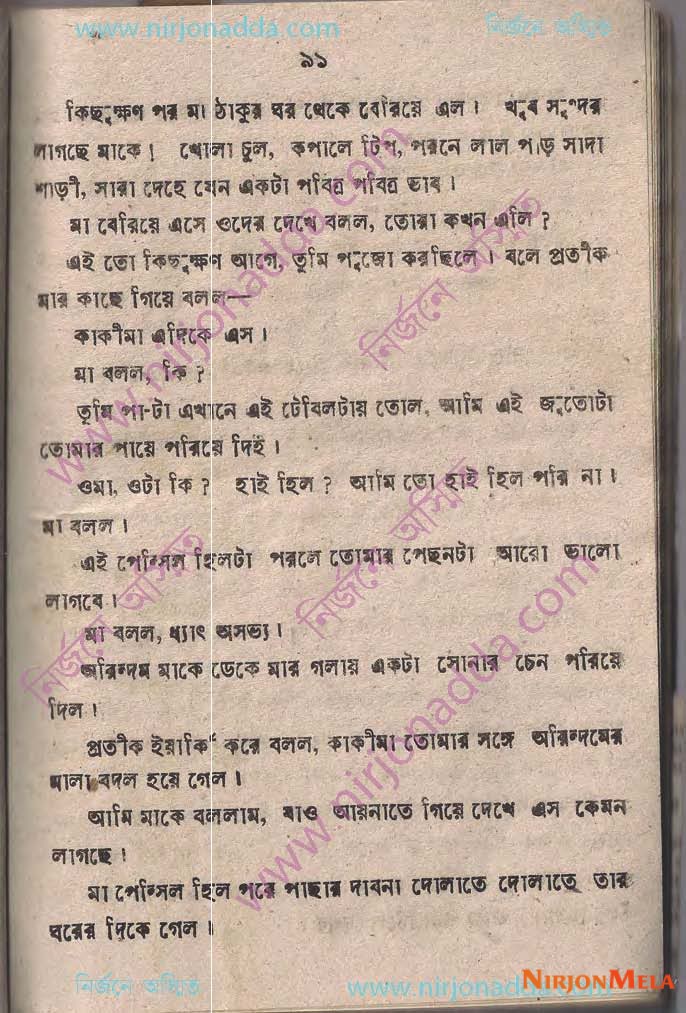 www.nirjonadda.com নির্জনে অস্মিত
৯১
কিছুক্ষণ পর মা ঠাকুর ঘর থেকে বেরিয়ে এল। খুব সুন্দর
লাগছে মাকে। খোলা চুল, কপালে টিপ, পরনে লাল পাড় সাদা
শাড়ী, সারা দেহে যেন একটা পবিত্র পবিত্র ভাব।
মা বেরিয়ে এসে ওদের দেখে বলল, তোরা কখন এলি?
এই তো কিছুক্ষণ আগে, তুমি পুজো করছিলে। বলে প্রতীক
মার কাছে গিয়ে বলল—
কাকীমা এদিকে এস।
মা বলল, কি?
তুমি পা-টা এখানে এই টেবিলটায় তোল, আমি এই জুতোটা
তোমার পায়ে পরিয়ে দিই।
ওমা, ওটা কি? হাই হিল? আমি তো হাই হিল পরি না।
মা বলল।
এই পেন্সিল হিলটা পরলে তোমার পেছনটা আরো ভালো
লাগবে।
মা বলল, ধ্যাৎ অসভ্য।
অরিন্দম মাকে ডেকে মার গলায় একটা সোনার চেন পরিয়ে
দিল।
প্রতীক ইয়ার্কি করে বলল, কাকীমা তোমার সঙ্গে অরিন্দমের
মালা বদল হয়ে গেল।
আমি মাকে বললাম, যাও আয়নাতে গিয়ে দেখে এস কেমন
লাগছে।
মা পেন্সিল হিল পরে পাছার দাবনা দোলাতে দোলাতে তার
ঘরের দিকে গেল।
নির্জনে অস্মিত www.nirjonadda.com NIRJONMELA
www.nirjonadda.com
নির্জনে অস্মিত
নির্জনে অস্মিত
নির্জনে অস্মিত
www.nirjonadda.com